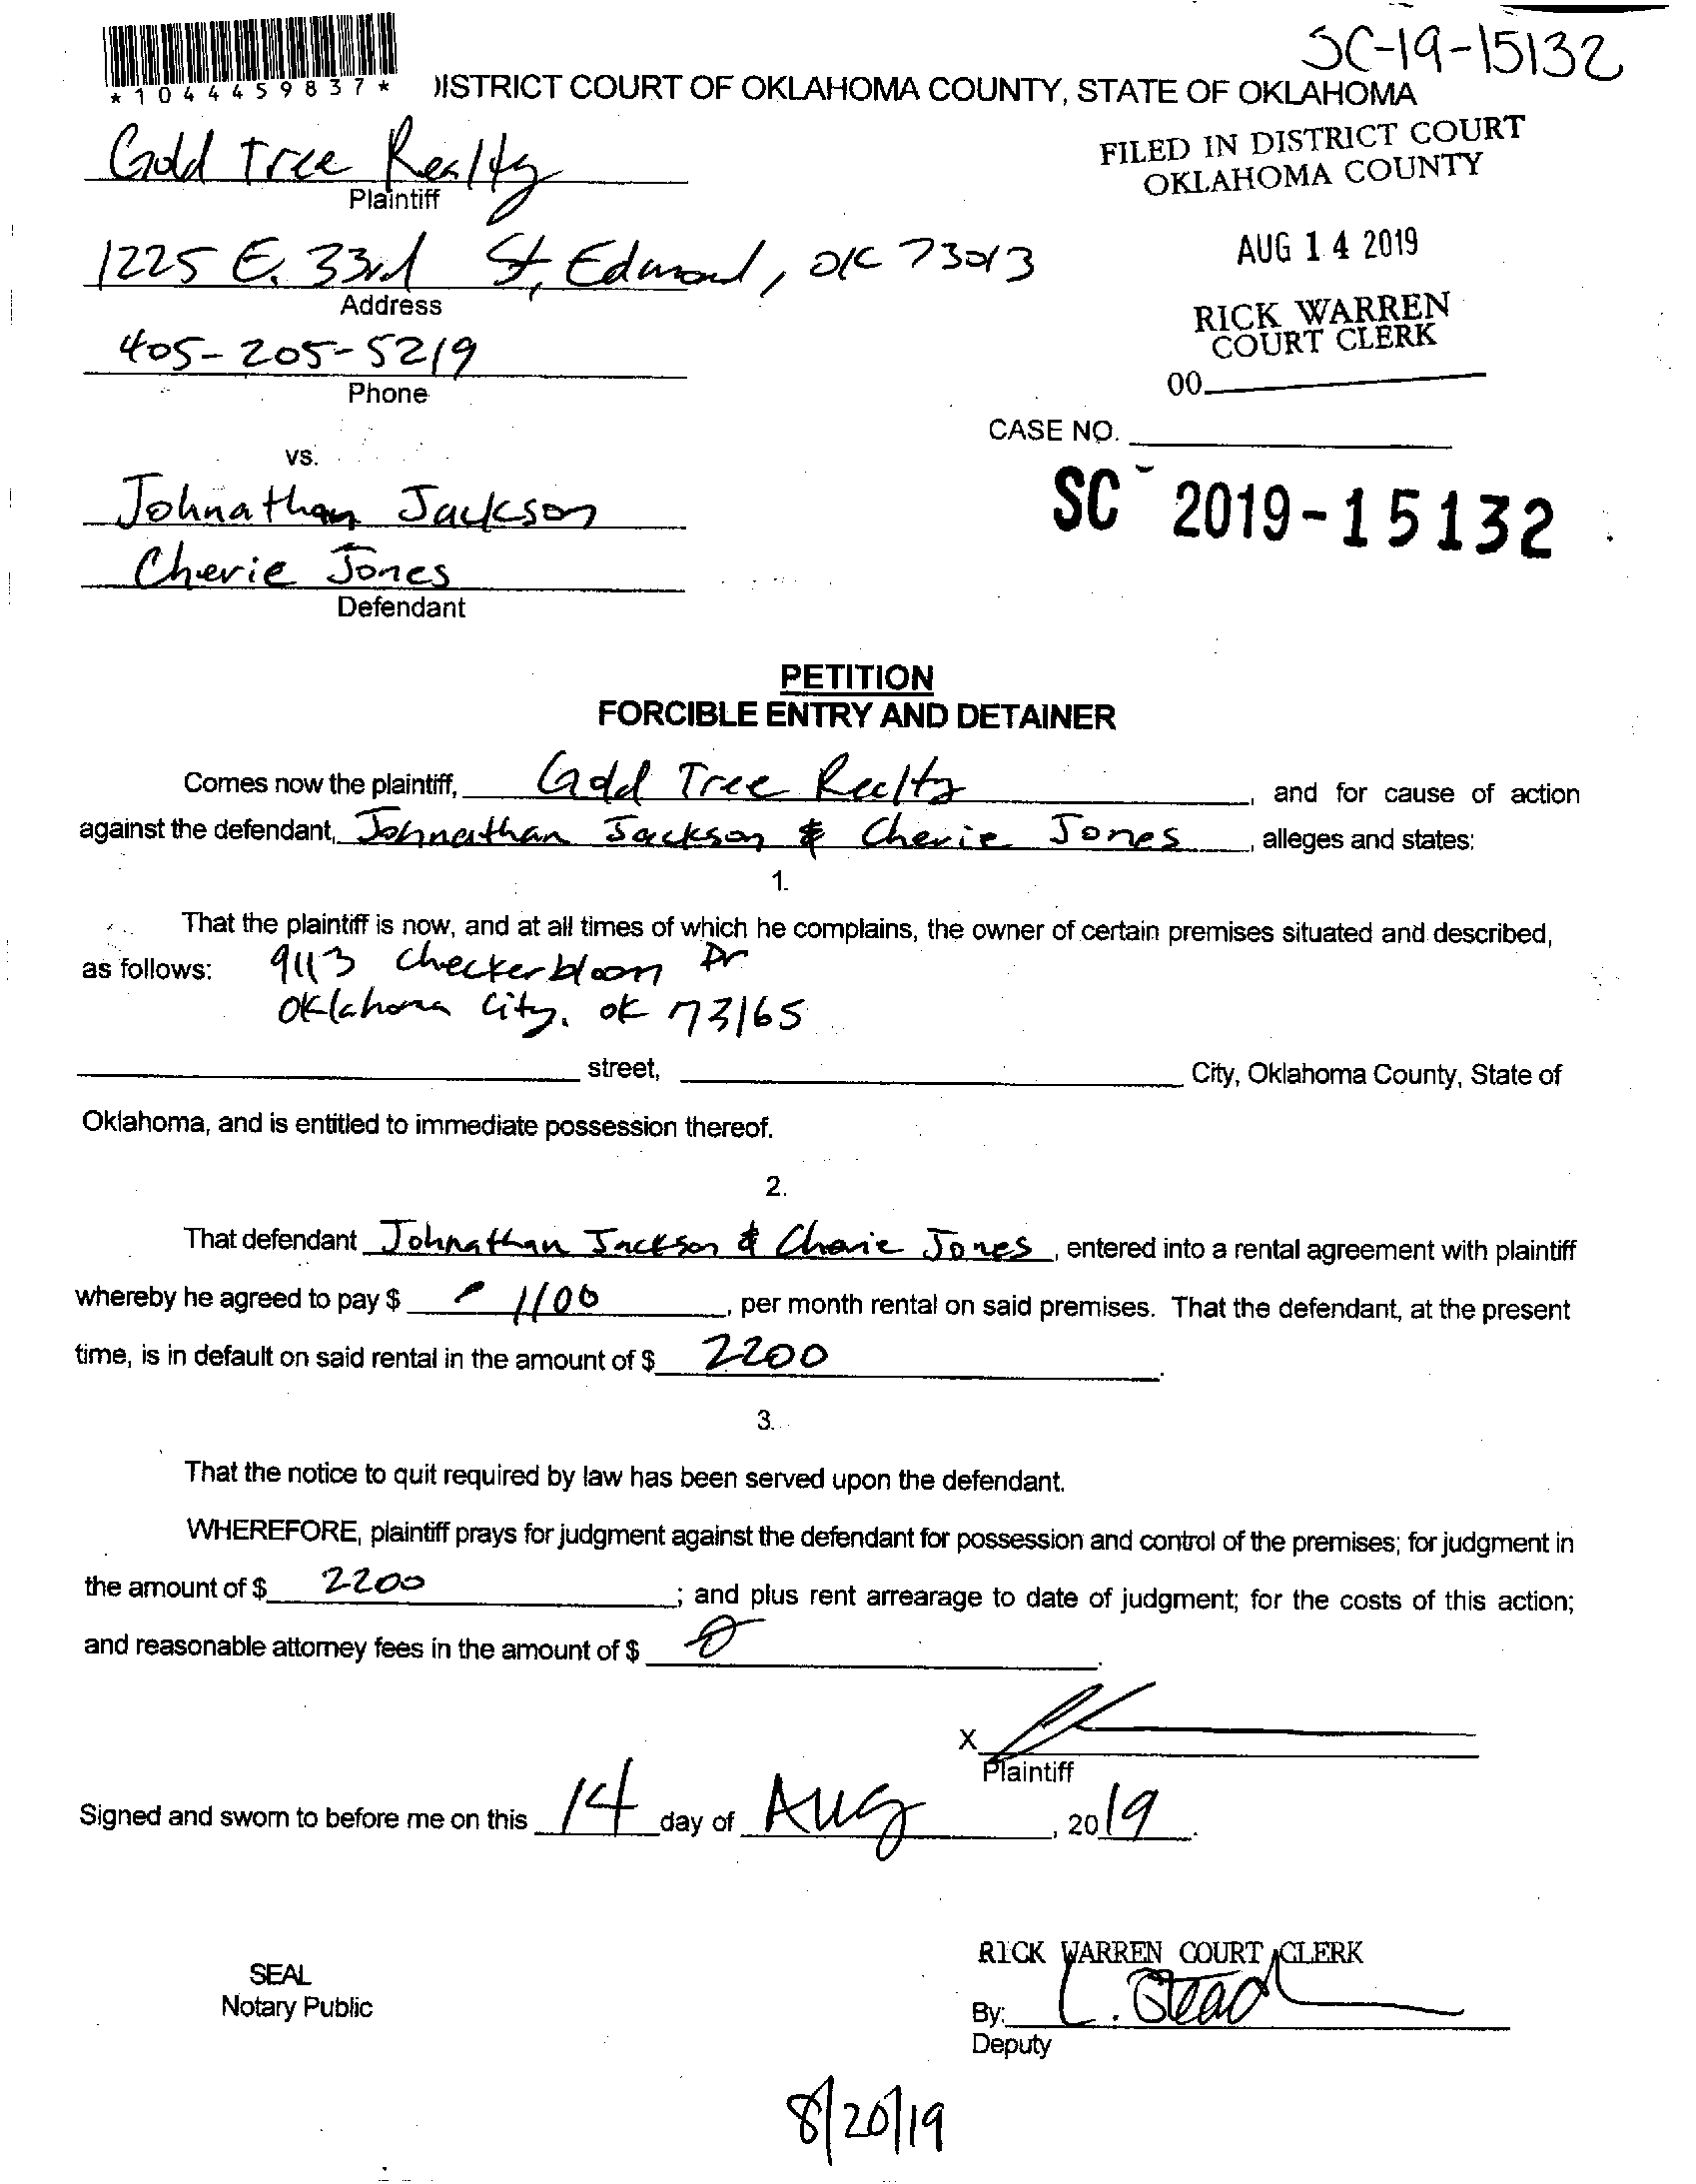 SC-19-15132
*1044459837*
DISTRICT COURT OF OKLAHOMA COUNTY, STATE OF OKLAHOMA
Gold Tree Realty
Plaintiff
FILED IN DISTRICT COURT
OKLAHOMA COUNTY
1225 E. 33rd St, Edmond, OK 73013
Address
AUG 14 2019
405-205-5219
Phone
RICK WARREN
COURT CLERK
00
CASE NO.
vs.
SC 2019-15132
Johnathan Jackson
Cherie Jones
Defendant
PETITION
FORCIBLE ENTRY AND DETAINER
Comes now the plaintiff, Gold Tree Realty, and for cause of action
against the defendant, Johnathan Jackson & Cherie Jones, alleges and states:
1.
That the plaintiff is now, and at all times of which he complains, the owner of certain premises situated and described,
as follows: 9113 Checkerbloom Dr
Oklahoma City, OK 73165
street, City, Oklahoma County, State of
Oklahoma, and is entitled to immediate possession thereof.
2.
That defendant Johnathan Jackson & Cherie Jones, entered into a rental agreement with plaintiff
whereby he agreed to pay $ 1100, per month rental on said premises. That the defendant, at the present
time, is in default on said rental in the amount of $ 2200.
3.
That the notice to quit required by law has been served upon the defendant.
WHEREFORE, plaintiff prays for judgment against the defendant for possession and control of the premises; for judgment in
the amount of $ 2200; and plus rent arrearage to date of judgment; for the costs of this action;
and reasonable attorney fees in the amount of $ 0.
X
Plaintiff
Signed and sworn to before me on this 14 day of Aug, 2019.
RICK WARREN COURT CLERK
SEAL
Notary Public
By:
Deputy
8/20/19